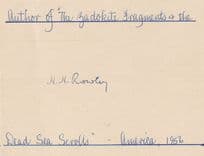 Author of "The Zadokite Fragments & the
H. H. Rowley
Dead Sea Scrolls" - America, 1956